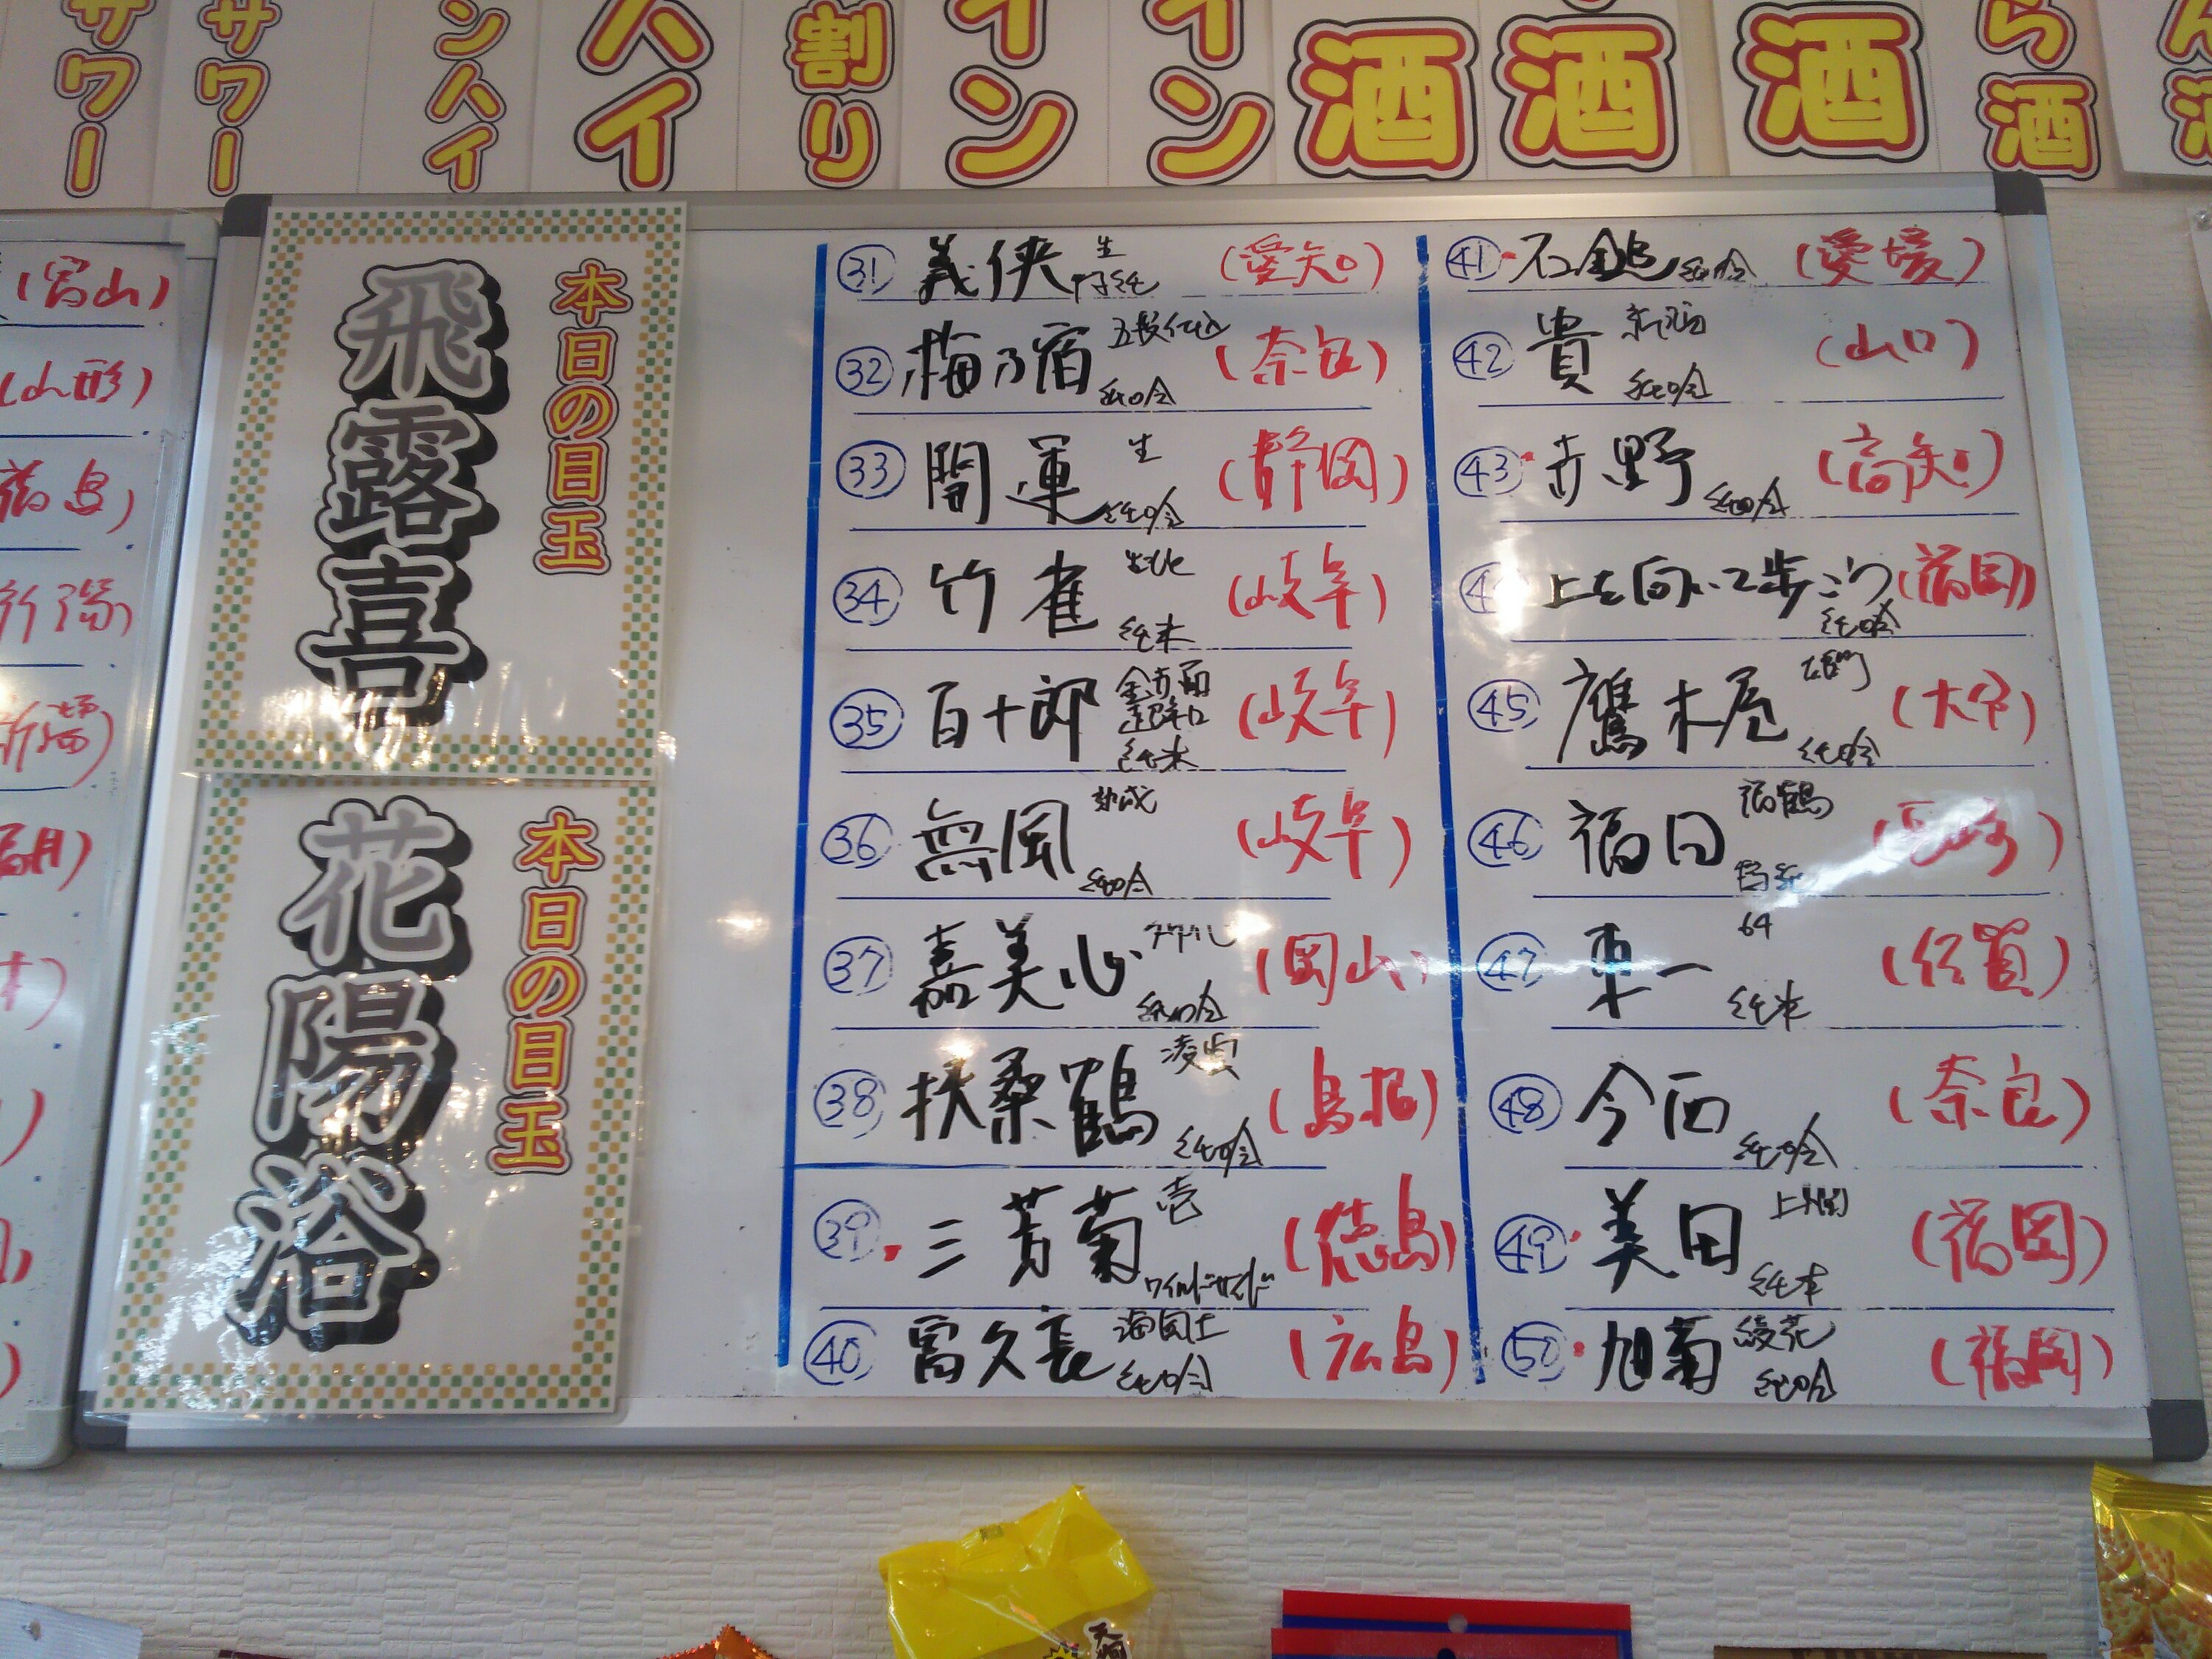 サワー
サワー
ンハイ
ハイ
割り
イン
イン
酒
酒
酒
ら酒
(岡山)
(山形)
福島)
本日の目玉
飛露喜
本日の目玉
花陽浴
㉛ 義侠 生 (愛知)
㉜ 梅乃宿 五段仕込 純吟 (奈良)
㉝ 開運 生 純吟 (静岡)
㉞ 竹雀 純米 (岐阜)
㉟ 百十郎 純米 (岐阜)
㊱ 無風 熟成 純吟 (岐阜)
㊲ 嘉美心 純吟 (岡山)
㊳ 扶桑鶴 純吟 (島根)
㊴ 三芳菊 壱 ワイルドサイド (徳島)
㊵ 富久長 海風土 純吟 (広島)
㊶ 石鎚 純吟 (愛媛)
㊷ 貴 純吟 (山口)
㊸ 赤野 純吟 (高知)
上を向いて歩こう 純吟 (福岡)
㊺ 鷹木屋 雄町 純吟 (大分)
㊻ 福田 福鶴 (長崎)
㊼ 東一 64 純米 (佐賀)
㊽ 今西 純吟 (奈良)
㊾ 美田 純米 (福岡)
㊿ 旭菊 綾花 純吟 (福岡)